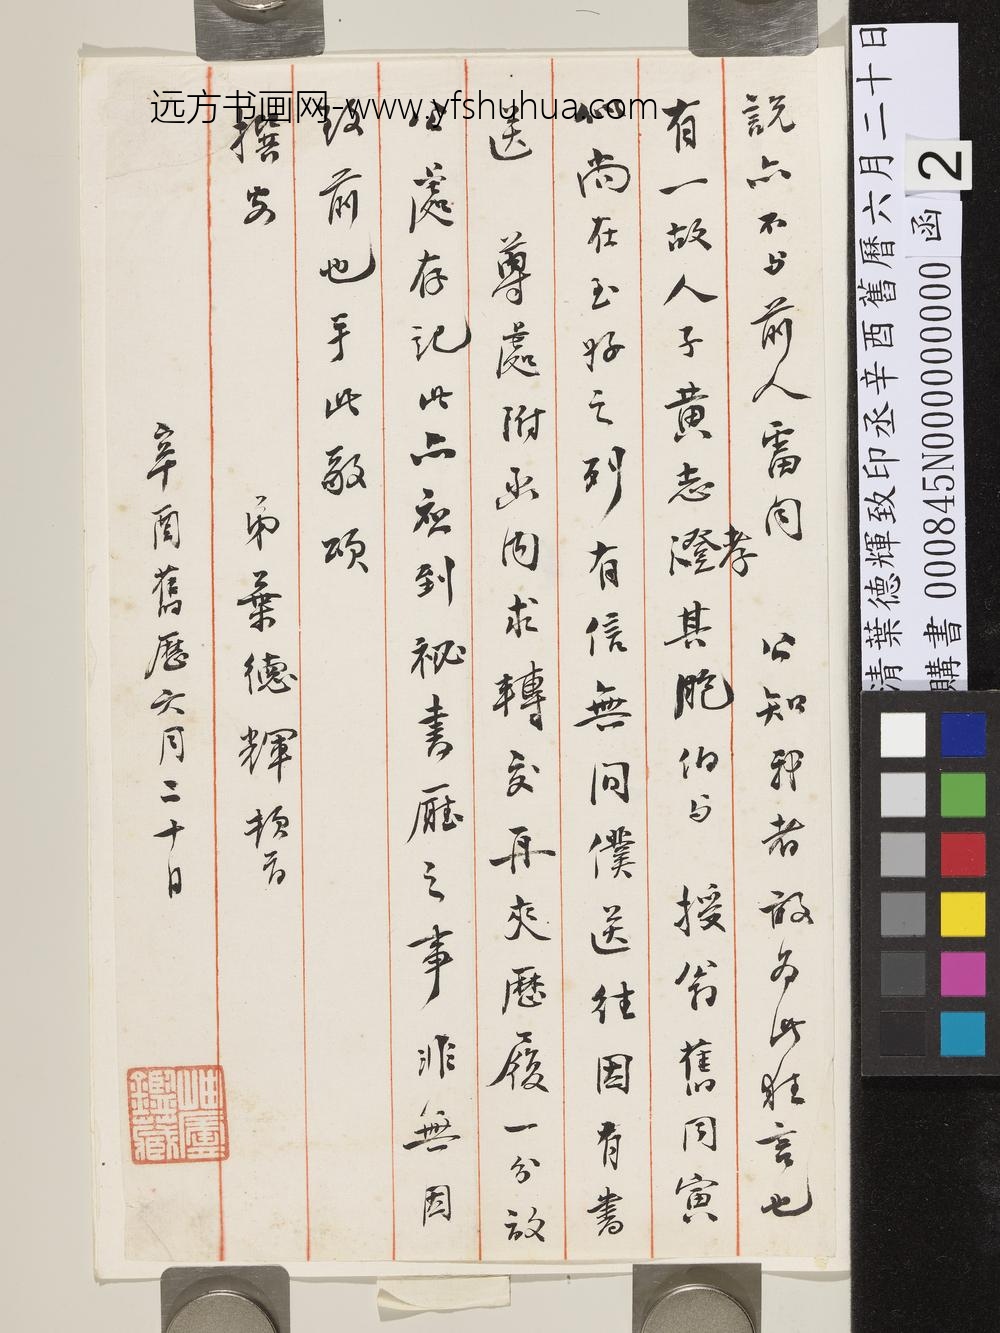 远方书画网-www.yfshuhua.com
說亦不与前人雷同 公知我者故为此狂言也
有一故人子黄志澄孝其胞伯与 授翁舊同寅
尚在至好之列有信無间僕送往因有書
送 尊處附函内求轉交再夾歷履一分放
處存記此亦應到祕書廳之事非無因
致前也手此敬頌
撰安
弟葉德輝頓首
辛酉舊歷六月二十日
岫廬鑑藏
清葉德輝致印丞辛酉舊曆六月二十日
購書 000845N000000000 函
2